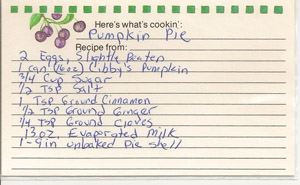 Here's what's cookin':
Pumpkin Pie
Recipe from:
2 Eggs, Slightly Beaten
1 can (16oz) Libby's Pumpkin
3/4 Cup Sugar
1/2 Tsp Salt
1 Tsp Ground Cinnamon
1/2 Tsp Ground Ginger
1/4 Tsp Ground Cloves
13oz. Evaporated Milk
1-9in unbaked Pie Shell